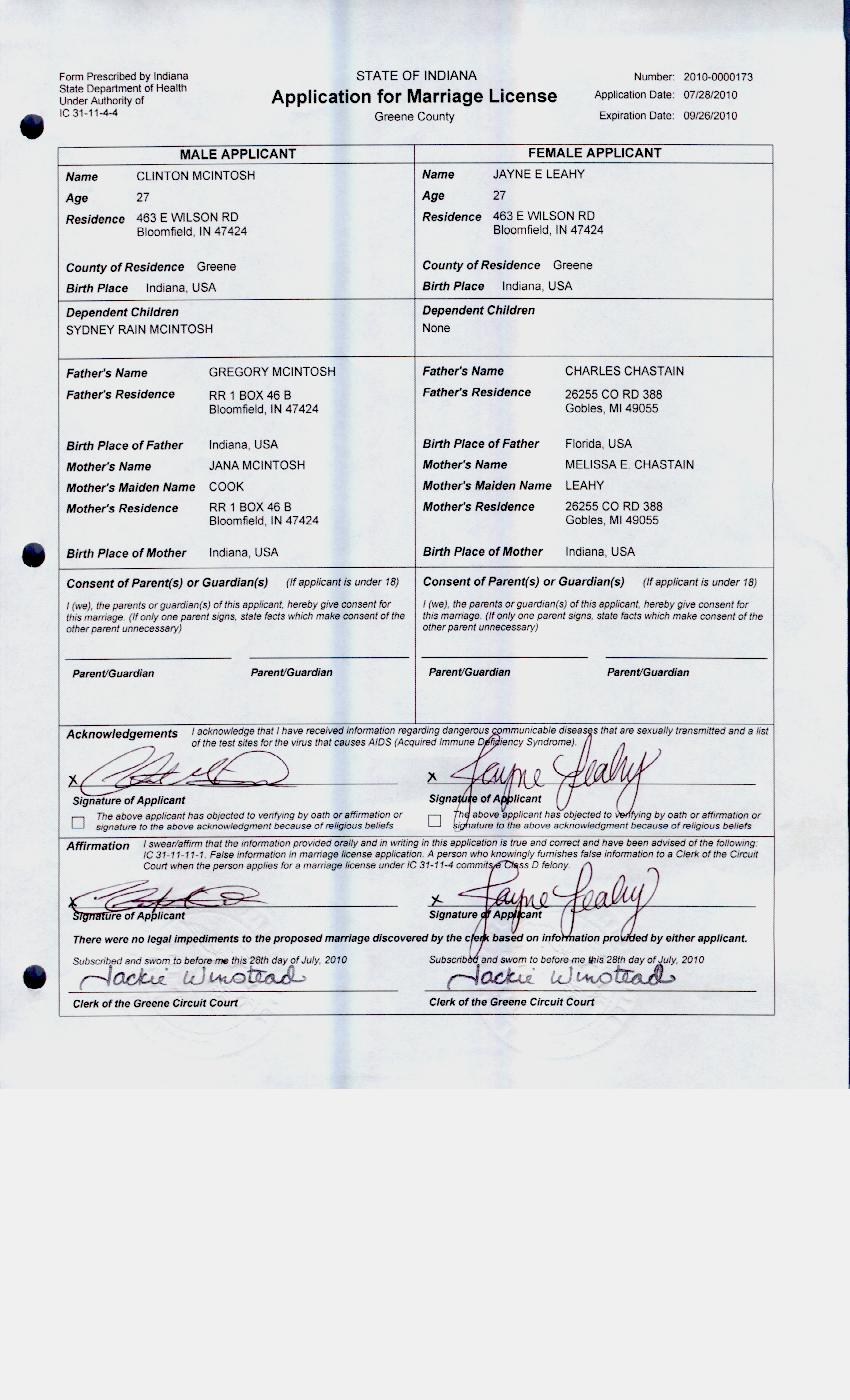 Form Prescribed by Indiana
State Department of Health
Under Authority of
IC 31-11-4-4
STATE OF INDIANA
Application for Marriage License
Greene County
Number: 2010-0000173
Application Date: 07/28/2010
Expiration Date: 09/26/2010
MALE APPLICANT
Name CLINTON MCINTOSH
Age 27
Residence 463 E WILSON RD
Bloomfield, IN 47424
County of Residence Greene
Birth Place Indiana, USA
Dependent Children
SYDNEY RAIN MCINTOSH
Father's Name GREGORY MCINTOSH
Father's Residence RR 1 BOX 46 B
Bloomfield, IN 47424
Birth Place of Father Indiana, USA
Mother's Name JANA MCINTOSH
Mother's Maiden Name COOK
Mother's Residence RR 1 BOX 46 B
Bloomfield, IN 47424
Birth Place of Mother Indiana, USA
Consent of Parent(s) or Guardian(s) (If applicant is under 18)
I (we), the parents or guardian(s) of this applicant, hereby give consent for
this marriage. (If only one parent signs, state facts which make consent of the
other parent unnecessary)
Parent/Guardian Parent/Guardian
FEMALE APPLICANT
Name JAYNE E LEAHY
Age 27
Residence 463 E WILSON RD
Bloomfield, IN 47424
County of Residence Greene
Birth Place Indiana, USA
Dependent Children
None
Father's Name CHARLES CHASTAIN
Father's Residence 26255 CO RD 388
Gobles, MI 49055
Birth Place of Father Florida, USA
Mother's Name MELISSA E. CHASTAIN
Mother's Maiden Name LEAHY
Mother's Residence 26255 CO RD 388
Gobles, MI 49055
Birth Place of Mother Indiana, USA
Consent of Parent(s) or Guardian(s) (If applicant is under 18)
I (we), the parents or guardian(s) of this applicant, hereby give consent for
this marriage. (If only one parent signs, state facts which make consent of the
other parent unnecessary)
Parent/Guardian Parent/Guardian
Acknowledgements I acknowledge that I have received information regarding dangerous communicable diseases that are sexually transmitted and a list
of the test sites for the virus that causes AIDS (Acquired Immune Deficiency Syndrome).
X
Signature of Applicant
The above applicant has objected to verifying by oath or affirmation or
signature to the above acknowledgment because of religious beliefs
X Jayne Leahy
Signature of Applicant
The above applicant has objected to verifying by oath or affirmation or
signature to the above acknowledgment because of religious beliefs
Affirmation I swear/affirm that the information provided orally and in writing in this application is true and correct and have been advised of the following:
IC 31-11-11-1. False information in marriage license application. A person who knowingly furnishes false information to a Clerk of the Circuit
Court when the person applies for a marriage license under IC 31-11-4 commits a Class D felony.
X
Signature of Applicant
X Jayne Leahy
Signature of Applicant
There were no legal impediments to the proposed marriage discovered by the clerk based on information provided by either applicant.
Subscribed and sworn to before me this 28th day of July, 2010
Jackie Winstead
Clerk of the Greene Circuit Court
Subscribed and sworn to before me this 28th day of July, 2010
Jackie Winstead
Clerk of the Greene Circuit Court